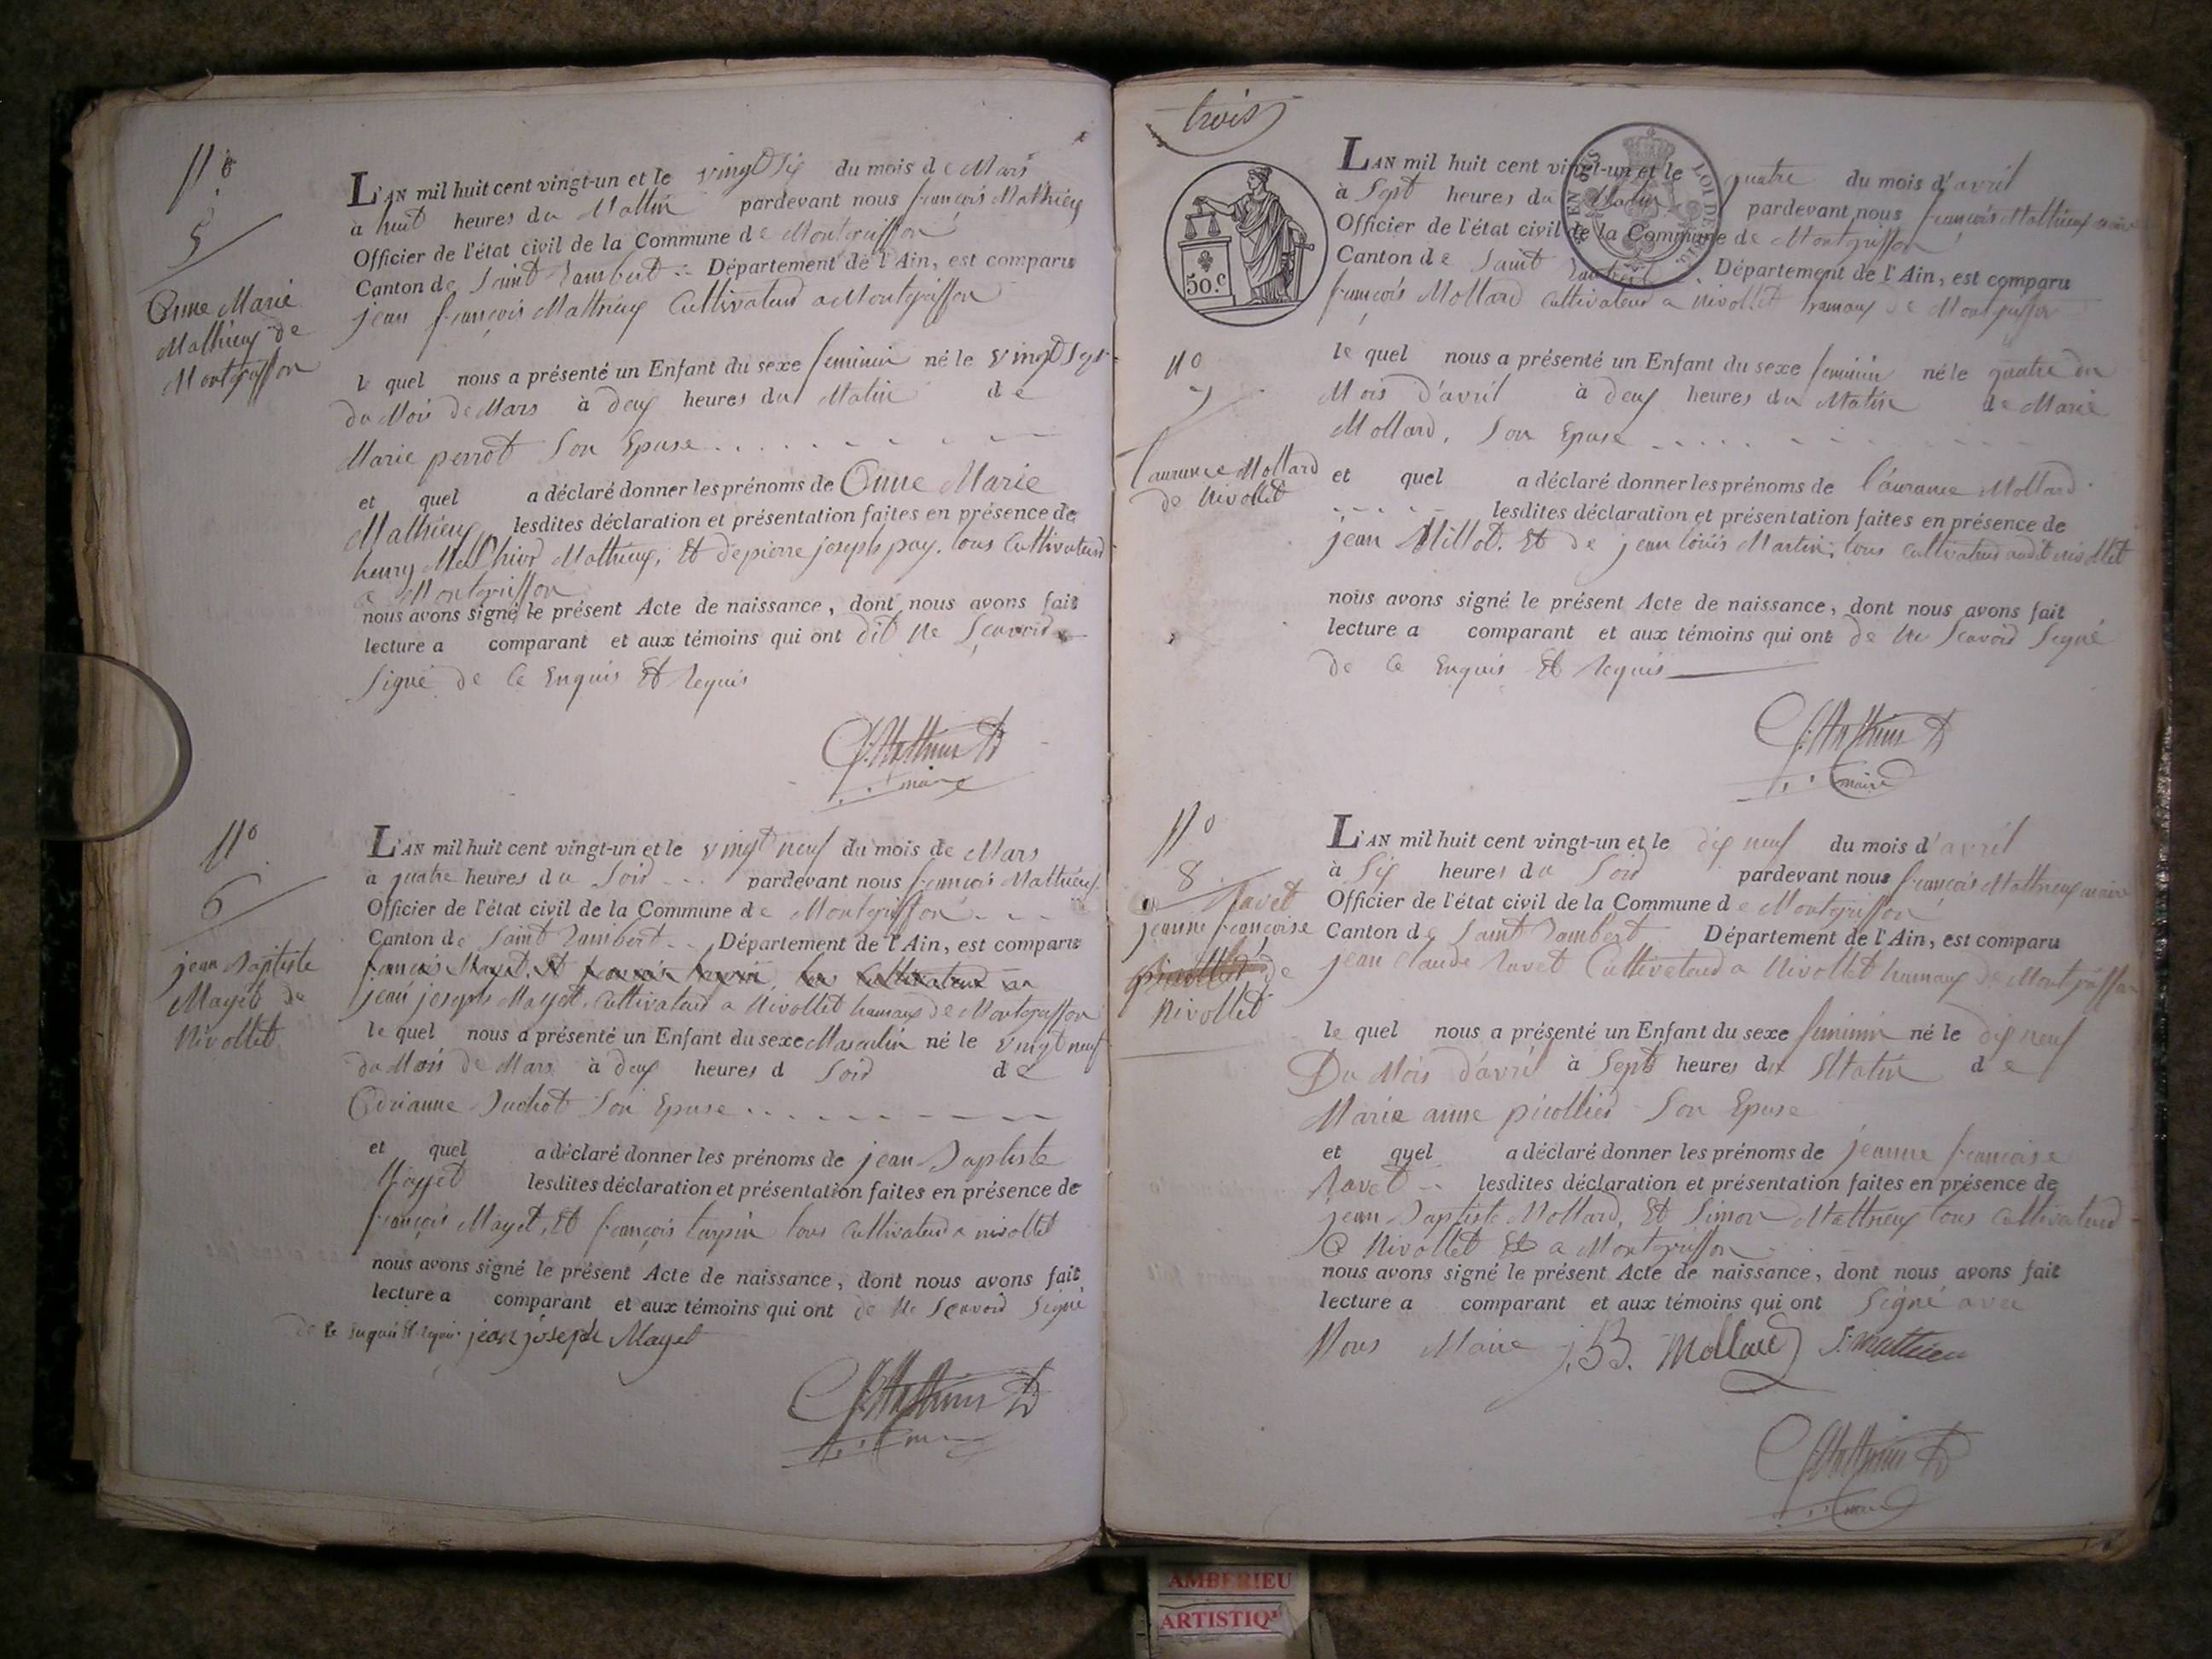 N°
5
Anne Marie
Mathieux de
Montgriffon
L'AN mil huit cent vingt-un et le vingt Six du mois de Mars
à huit heures du Mattin pardevant nous françois Mathieux
Officier de l'état civil de la Commune de Montgriffon
Canton de Saint Rambert Département de l'Ain, est comparu
jean françois Mathieux Cultivateur a Montgriffon
le quel nous a présenté un Enfant du sexe feminin né le vingt Sept
du Mois de Mars à deux heures du Matin de
Marie perrot Son Epuse
et quel a déclaré donner les prénoms de Anne Marie
Mathieux lesdites déclaration et présentation faites en présence de
henry Melchior Mathieux, Et de pierre joseph pay, tous Cultivateurs
a Montgriffon
nous avons signé le présent Acte de naissance, dont nous avons fait
lecture a comparant et aux témoins qui ont dit Ne Scavoir
Signé de Ce Enquis Et Requis
maire
N°
6
jean Baptiste
Mayet de
Nivollet
L'AN mil huit cent vingt-un et le vingt neuf du mois de Mars
a quatre heures du Soir pardevant nous françois Mathieux
Officier de l'état civil de la Commune de Montgriffon
Canton de Saint Rambert Département de l'Ain, est comparu
françois Mayet, Et
jean joseph Mayet, Cultivateur a Nivollet hamaux de Montgriffon
le quel nous a présenté un Enfant du sexe Masculin né le vingt neuf
du Mois de Mars à deux heures d Soir de
Adrianne Juchot Son Epuse
et quel a déclaré donner les prénoms de jean Baptiste
Mayet lesdites déclaration et présentation faites en présence de
françois Mayet, Et françois tarpin tous Cultivateur a nivollet
nous avons signé le présent Acte de naissance, dont nous avons fait
lecture a comparant et aux témoins qui ont de Ne Scavoir Signé
de Ce Enquis Et Requis. jean joseph Mayet
trois
50.c
N°
7
Laurance Mollard
de Nivollet
L'AN mil huit cent vingt-un et le quatre du mois d'avril
à Sept heures du Matin pardevant nous françois Mathieux maire
Officier de l'état civil de la Commune de Montgriffon
Canton de Saint Rambert Département de l'Ain, est comparu
françois Mollard Cultivateur a Nivollet hamaux de Montgriffon
le quel nous a présenté un Enfant du sexe feminin né le quatre du
Mois d'avril à deux heures du Matin de Marie
Mollard, Son Epuse
et quel a déclaré donner les prénoms de laurance Mollard
lesdites déclaration et présentation faites en présence de
jean Millot, Et de jean louis Martin, tous Cultivateur audit nivollet
nous avons signé le présent Acte de naissance, dont nous avons fait
lecture a comparant et aux témoins qui ont de Ne Scavoir Signé
de Ce Enquis Et Requis
maire
N°
8
Ravet
jeanne françoise
de
Nivollet
L'AN mil huit cent vingt-un et le dix neuf du mois d'avril
à Six heures du Soir pardevant nous françois Mathieux maire
Officier de l'état civil de la Commune de Montgriffon
Canton de Saint Rambert Département de l'Ain, est comparu
jean Claude Ravet Cultivateur a Nivollet hamaux de Montgriffon
le quel nous a présenté un Enfant du sexe feminin né le dix neuf
Du Mois d'avril à Sept heures du Matin de
Marie anne picollier Son Epuse
et quel a déclaré donner les prénoms de jeanne françoise
Ravet lesdites déclaration et présentation faites en présence de
jean Baptiste Mollard, Et Simon Mathieux tous Cultivateur
a Nivollet Et a Montgriffon
nous avons signé le présent Acte de naissance, dont nous avons fait
lecture a comparant et aux témoins qui ont Signé avec
Nous Maire j.B. Mollard S. mathieu
AMBERIEU
ARTISTIQ